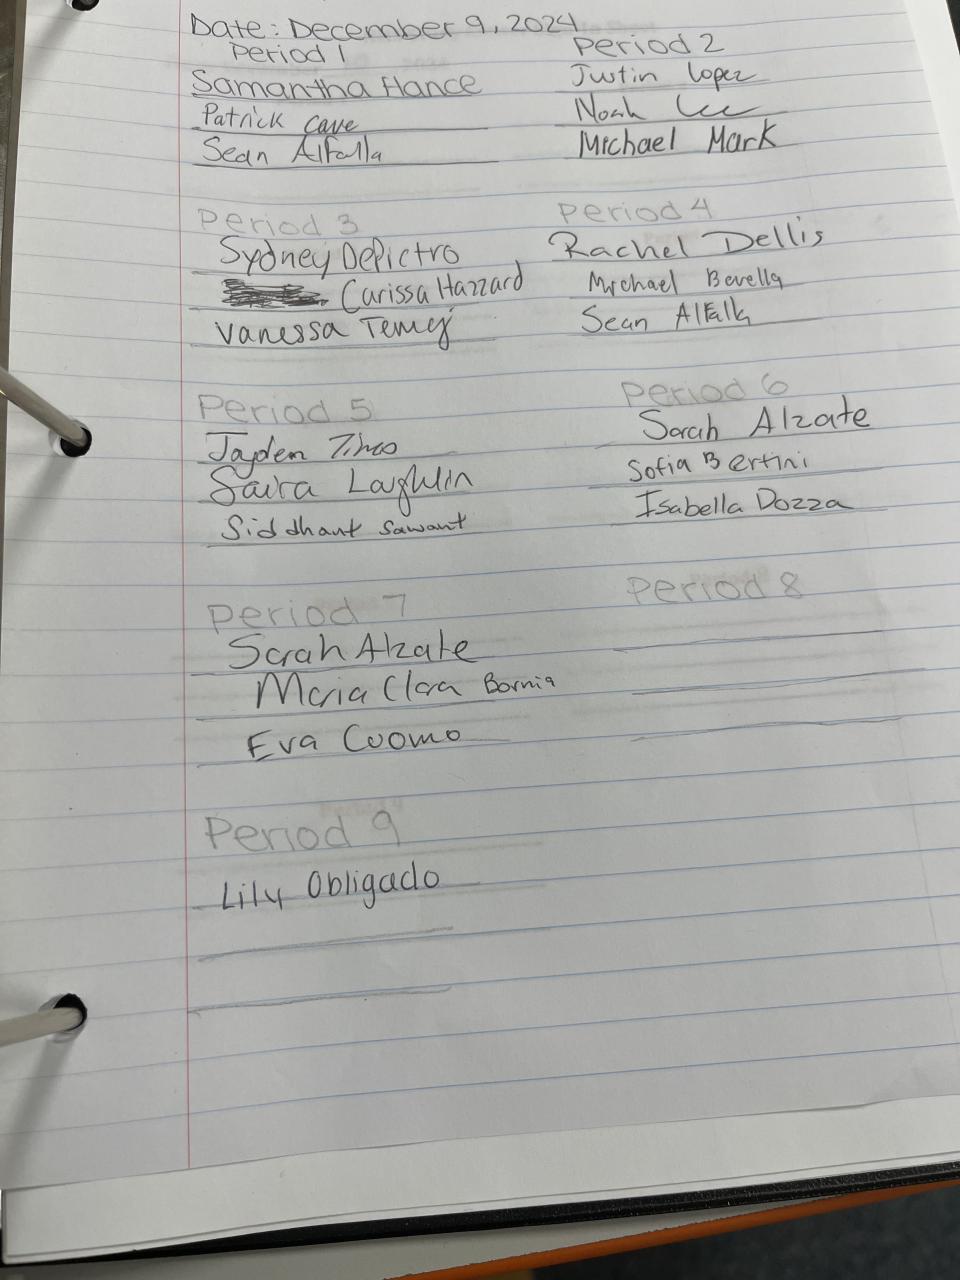 Date: December 9, 2024
Period 1
Samantha Hance
Patrick Cave
Sean Alfalla
Period 2
Justin Lopez
Noah Lee
Michael Mark
Period 3
Sydney DePietro
Carissa Hazzard
Vanessa
Period 4
Rachel Dellis
Michael Bevella
Sean Alfalla
Period 5
Jayden
Saira Laghlin
Siddhant Sawant
Period 6
Sarah Alzate
Sofia Bertini
Isabella Dozza
Period 7
Sarah Alzate
Maria Clara Bornia
Eva Cuomo
Period 8
Period 9
Lily Obligado